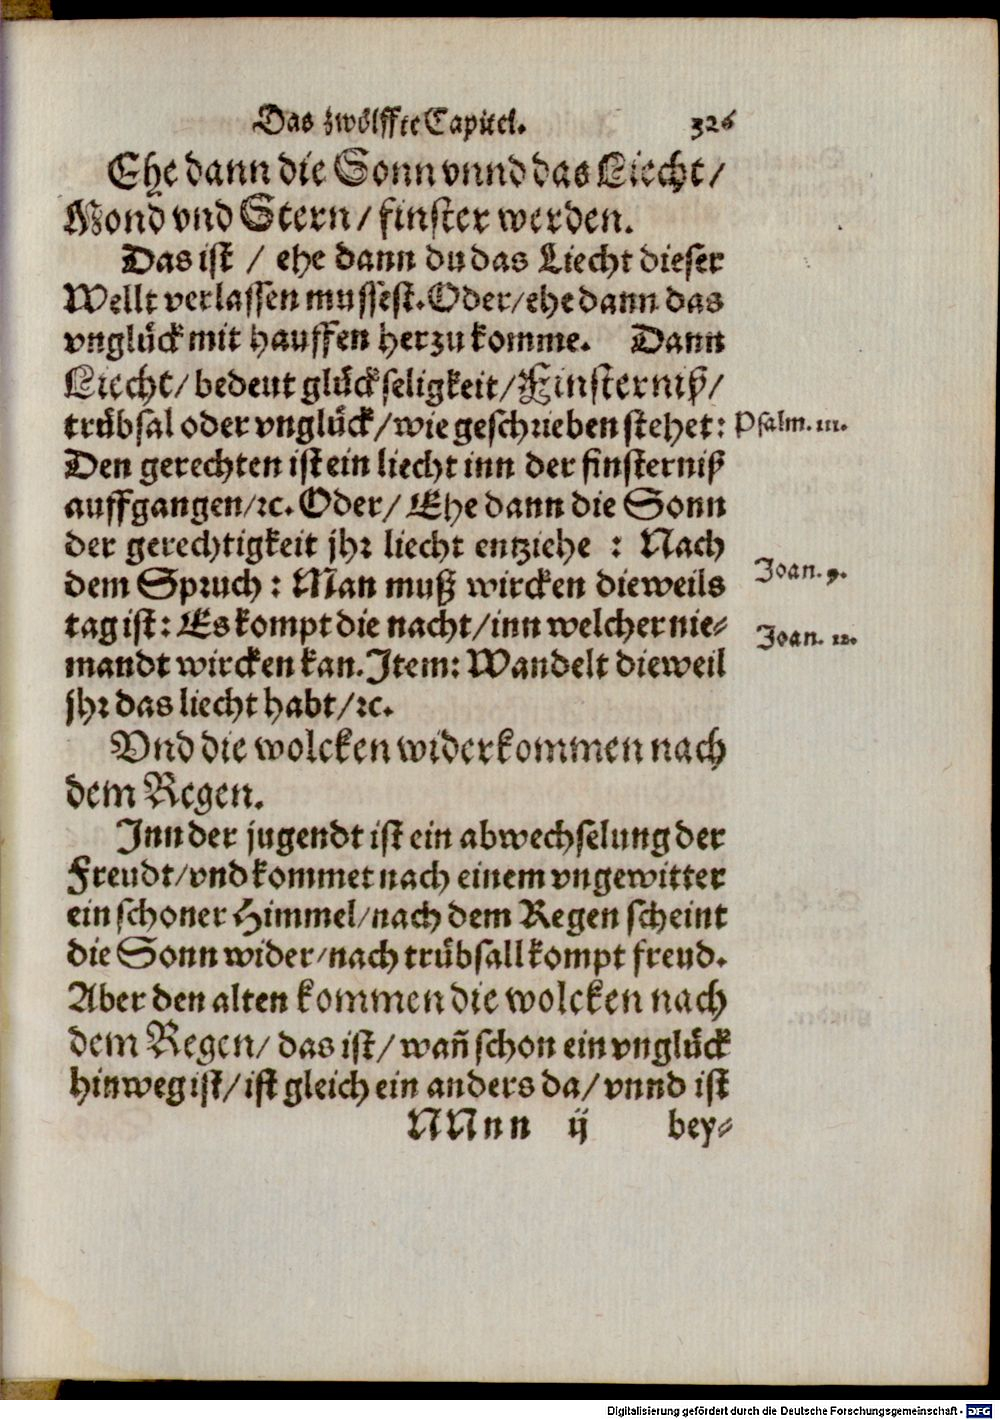 Das zwölffte Capitel. 326
Ehe dann die Sonn vnnd das Liecht/
Mond vnd Stern/ finster werden.
Das ist / ehe dann du das Liecht dieser
Wellt verlassen mussest. Oder/ ehe dann das
vnglück mit hauffen herzu komme. Dann
Liecht/ bedeut glückseligkeit/ Finsterniß/
trübsal oder vnglück/ wie geschrieben stehet: Psalm. 111.
Den gerechten ist ein liecht inn der finsterniß
auffgangen/ ꝛc. Oder/ Ehe dann die Sonn
der gerechtigkeit jhr liecht entziehe : Nach
dem Spruch : Man muß wircken dieweils Joan. 9.
tag ist: Es kompt die nacht/ inn welcher nie⸗ Joan. 12.
mandt wircken kan. Item: Wandelt dieweil
jhr das liecht habt/ ꝛc.
Vnd die wolcken widerkommen nach
dem Regen.
Inn der jugendt ist ein abwechselung der
Freudt/ vnd kommet nach einem vngewitter
ein schoner Himmel/ nach dem Regen scheint
die Sonn wider/ nach trübsall kompt freud.
Aber den alten kommen die wolcken nach
dem Regen/ das ist/ wañ schon ein vnglück
hinweg ist/ ist gleich ein anders da/ vnnd ist
NNnn ij bey⸗
Digitalisierung gefördert durch die Deutsche Forschungsgemeinschaft - DFG